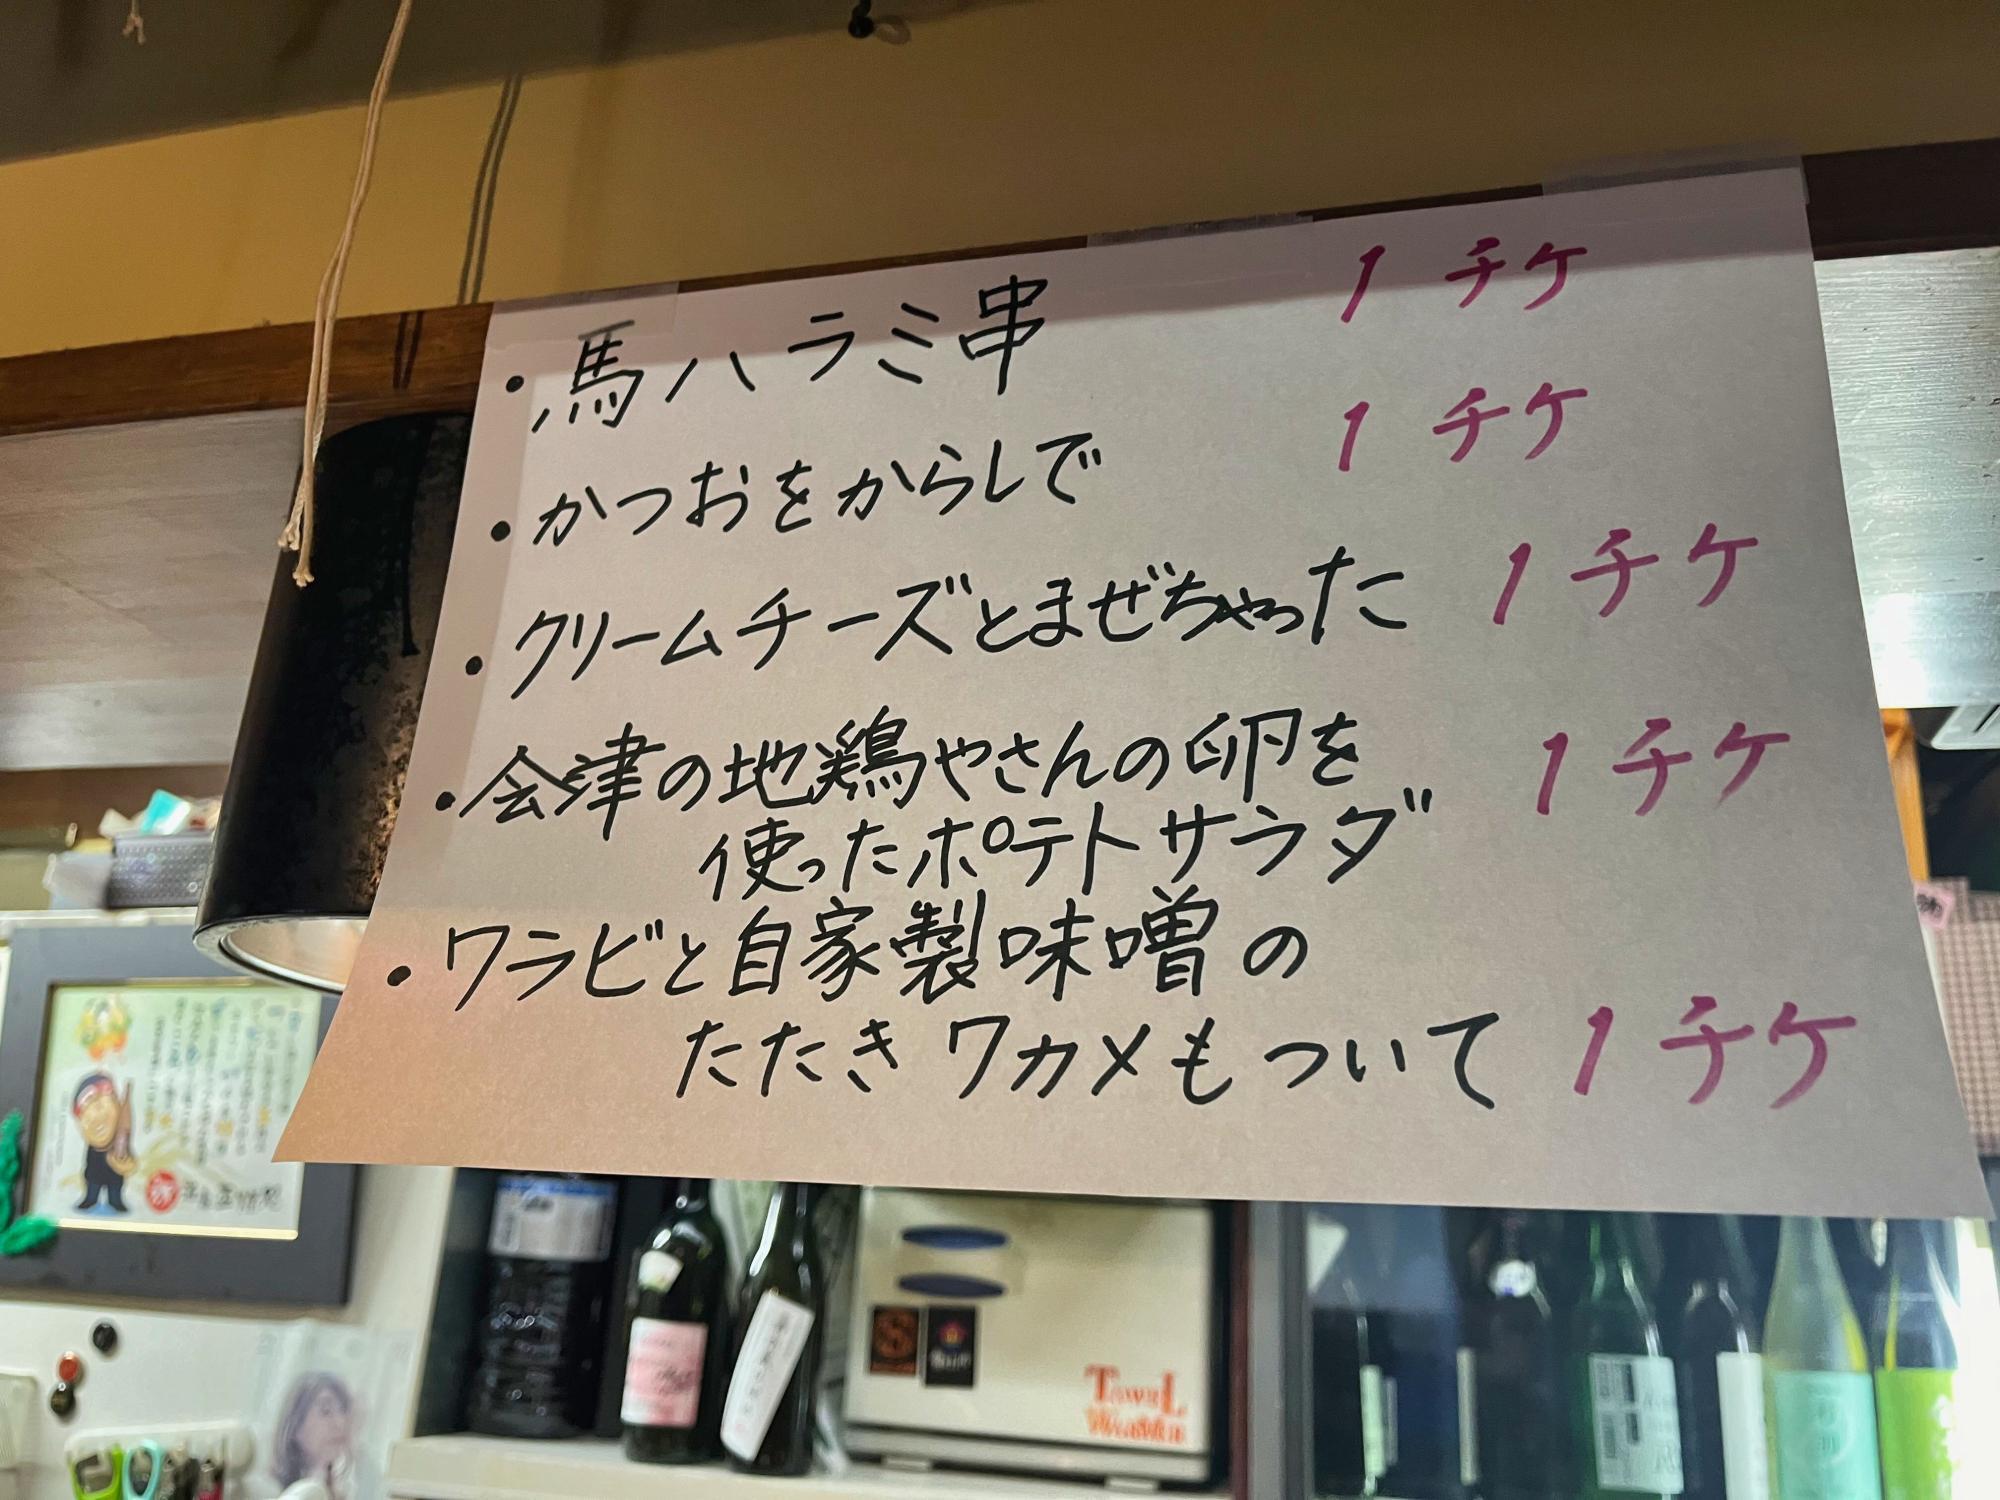 ・馬ハラミ串 1チケ
・かつおをからしで 1チケ
・クリームチーズとまぜちゃった 1チケ
・会津の地鶏やさんの卵を 1チケ
使ったポテトサラダ
・ワラビと自家製味噌の
たたきワカメもついて 1チケ
TOWEL
WARMER